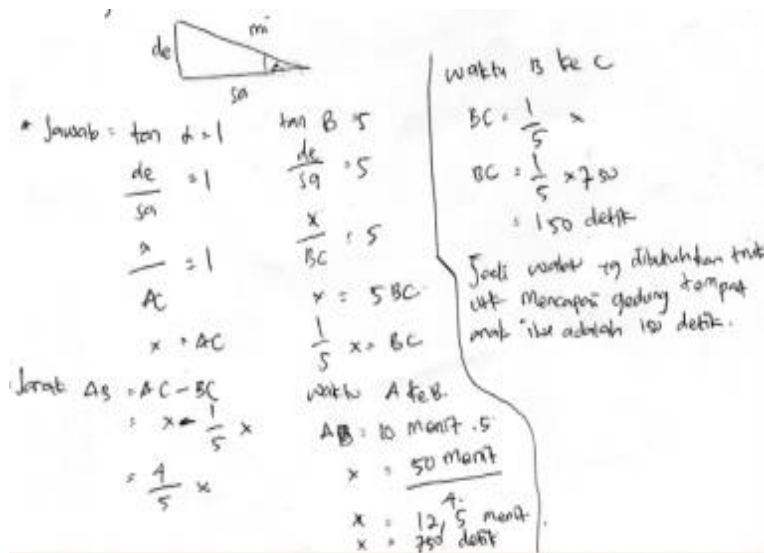 de
mi
α
sa
* Jawab = tan α = 1
de/sa = 1
x/AC = 1
x = AC
Jarak AB = AC - BC
= x - 1/5 x
= 4/5 x
tan B = 5
de/sa = 5
x/BC = 5
x = 5 BC
1/5 x = BC
waktu A ke B.
AB = 10 menit . 5
x = 50 menit / 4
x = 12,5 menit.
x = 750 detik
waktu B ke C
BC = 1/5 x
BC = 1/5 x 750
= 150 detik
Jadi waktu yg dibutuhkan truk
utk mencapai gedung tempat
anak itu adalah 150 detik.